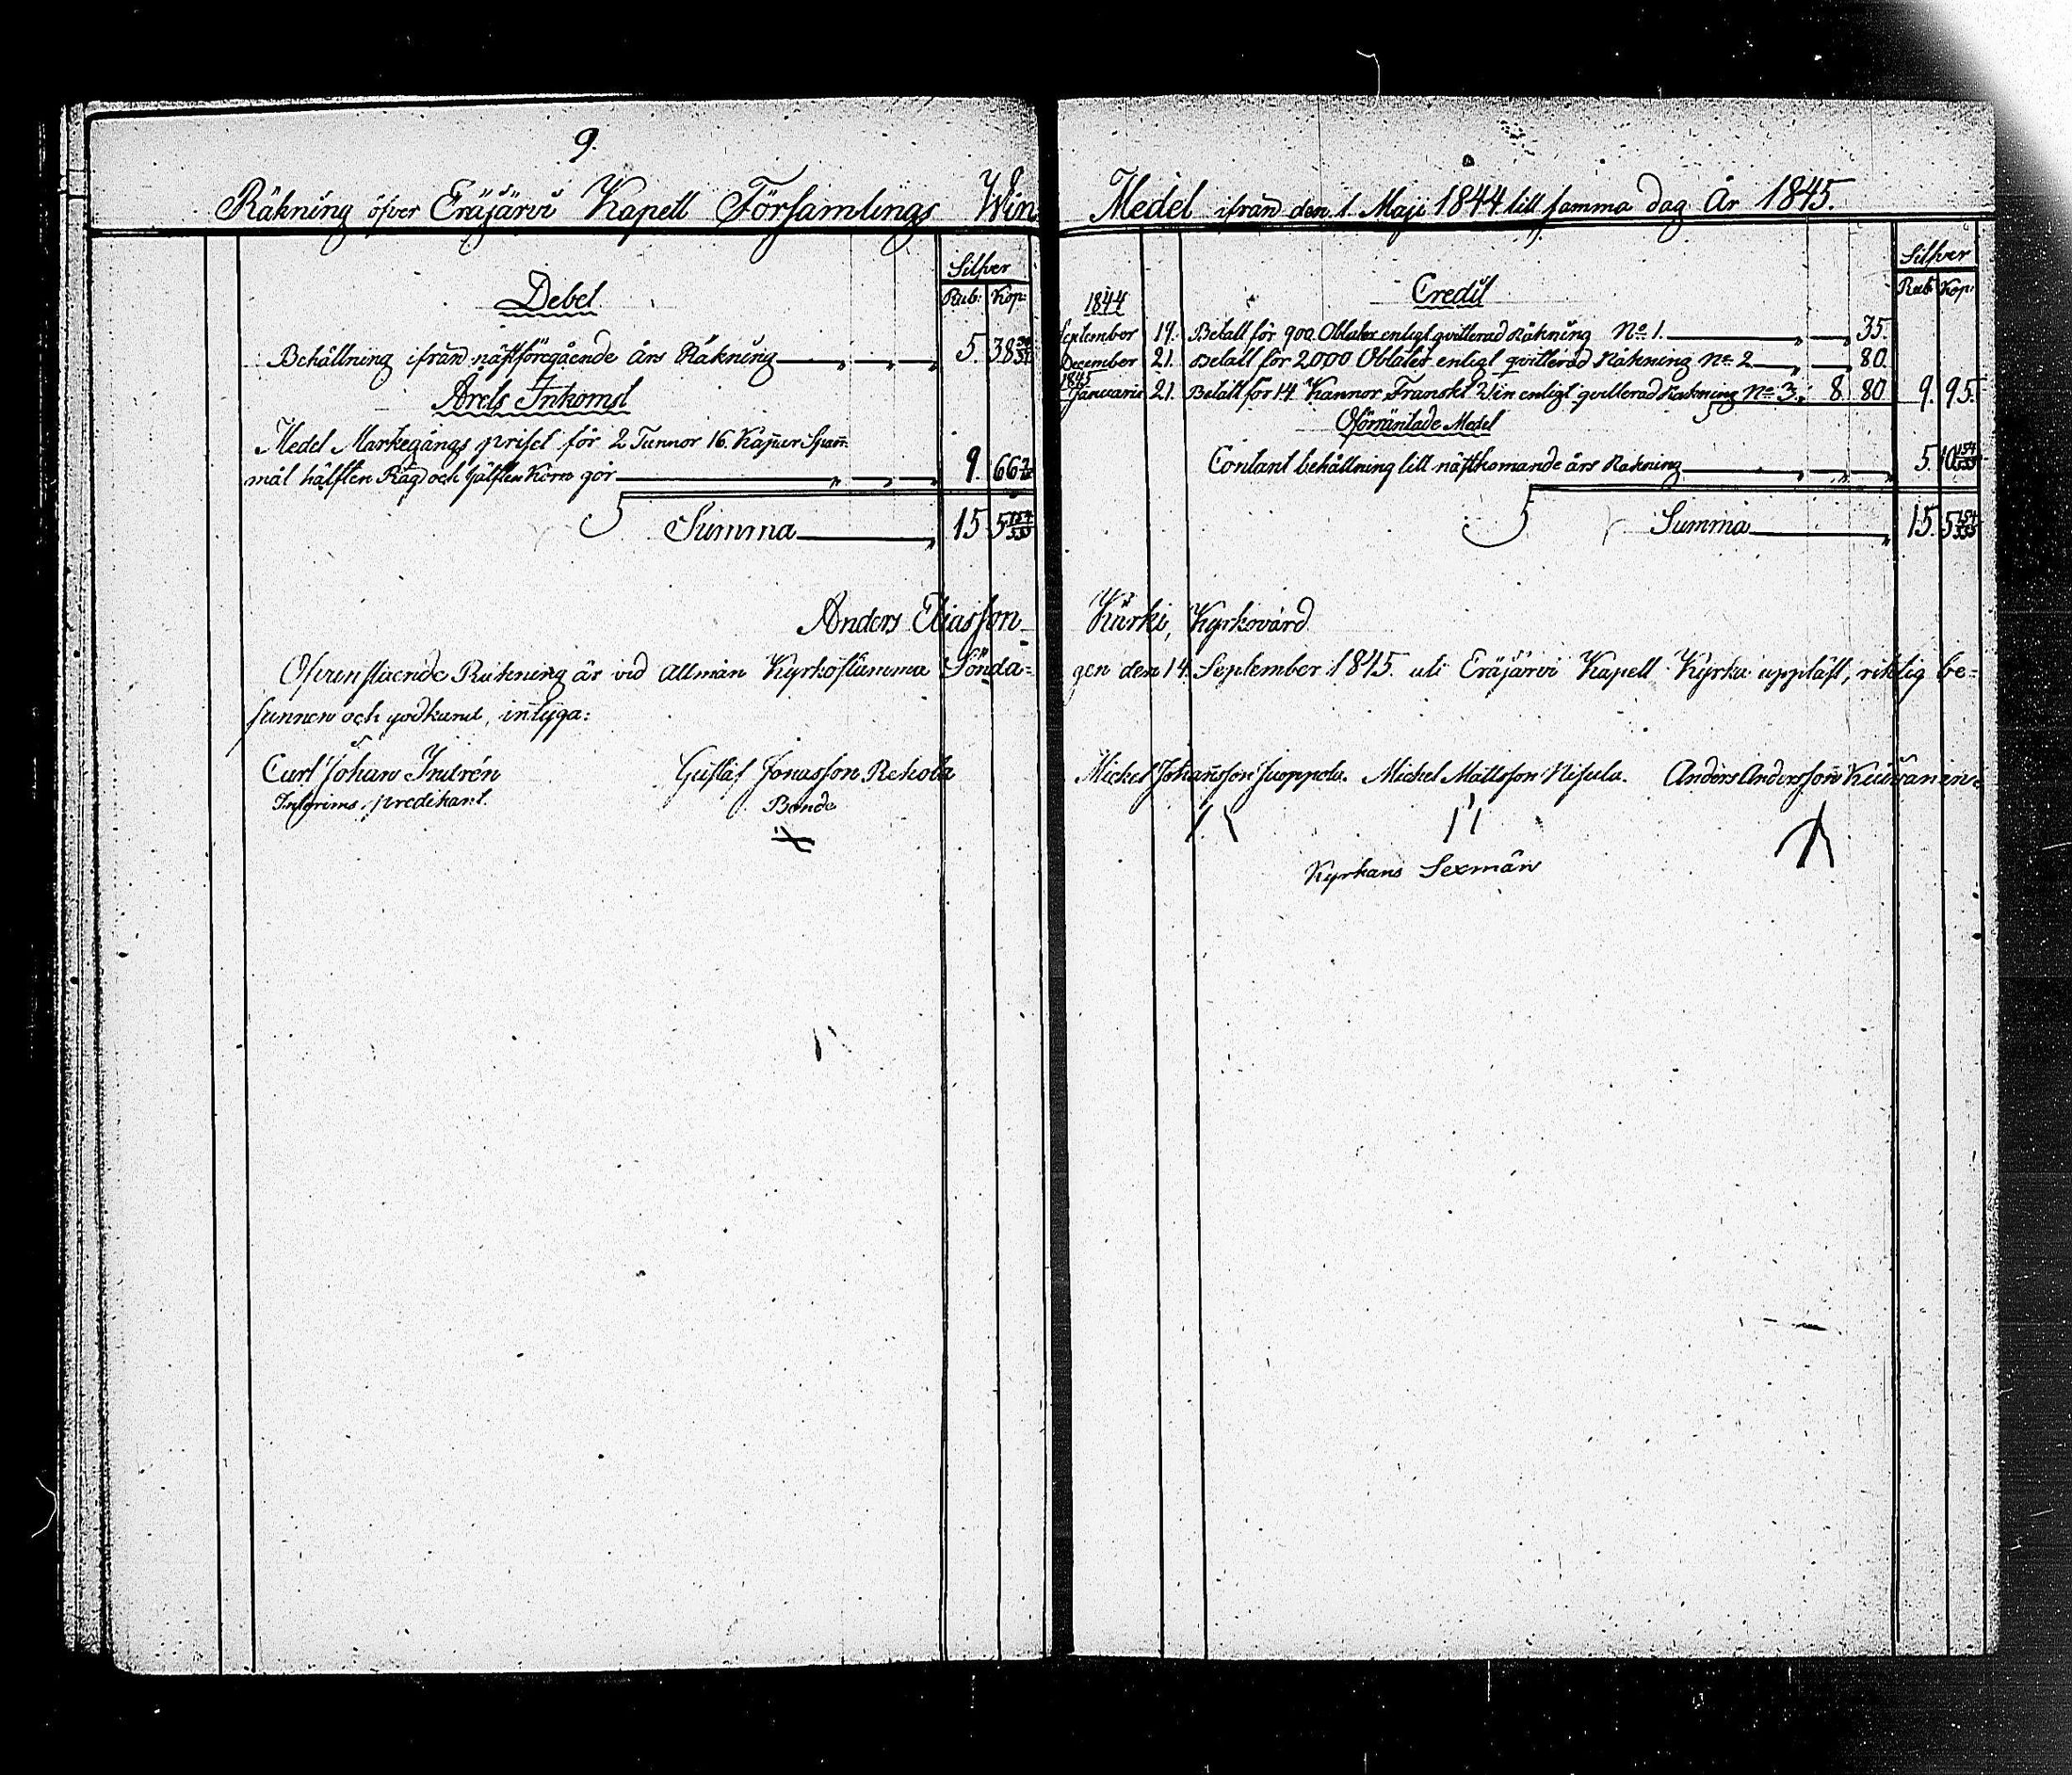 9.
Räkning öfver Eräjärvi Kapell Församlings Win
Silfver
Debet
Rub: Kop:
Behållning ifrån nästföregående års Räkning 5. 38
Årets Inkomst
Medel Markegångs priset för 2 Tunnor 16. Kappar Spann-
mål hälften Råg och hälften Korn gör 9. 66
Summa 15 5 154/535
Anders Eliasson
Ofvanstående Räkning är vid allmän Kyrkostämma Sönda-
funnen och godkänd, intyga:
Carl Johan Indrén Gustaf Jonasson Rekola
Interims predikant. Bonde
Medel ifrån den 1. Maji 1844 till samma dag År 1845.
Silfver
Credit
Rub Kop:
1844
September 17. Betalt för 900 Oblater enligt qvitterad Räkning No. 1. 35.
December 21. Betalt för 2000 Oblater enligt qvitterad Räkning No. 2 80.
1845
Januarii 21. Betalt för 14 Kannor Franskt Win enligt qvitterad Räkning No. 3. 8. 80 9. 95.
Oförräntade Medel
Contant behållning till nästkomande års Räkning 5. 10 154/535
Summa 15. 5 154/535
Kärki, Kyrkovärd
gen den 14. September 1845. uti Eräjärvi Kapell Kyrka uppläst, riktig be-
Mickel Johansson Suoppola. Mickel Mattsson Nisula. Anders Andersson
Kyrkans Sexmän